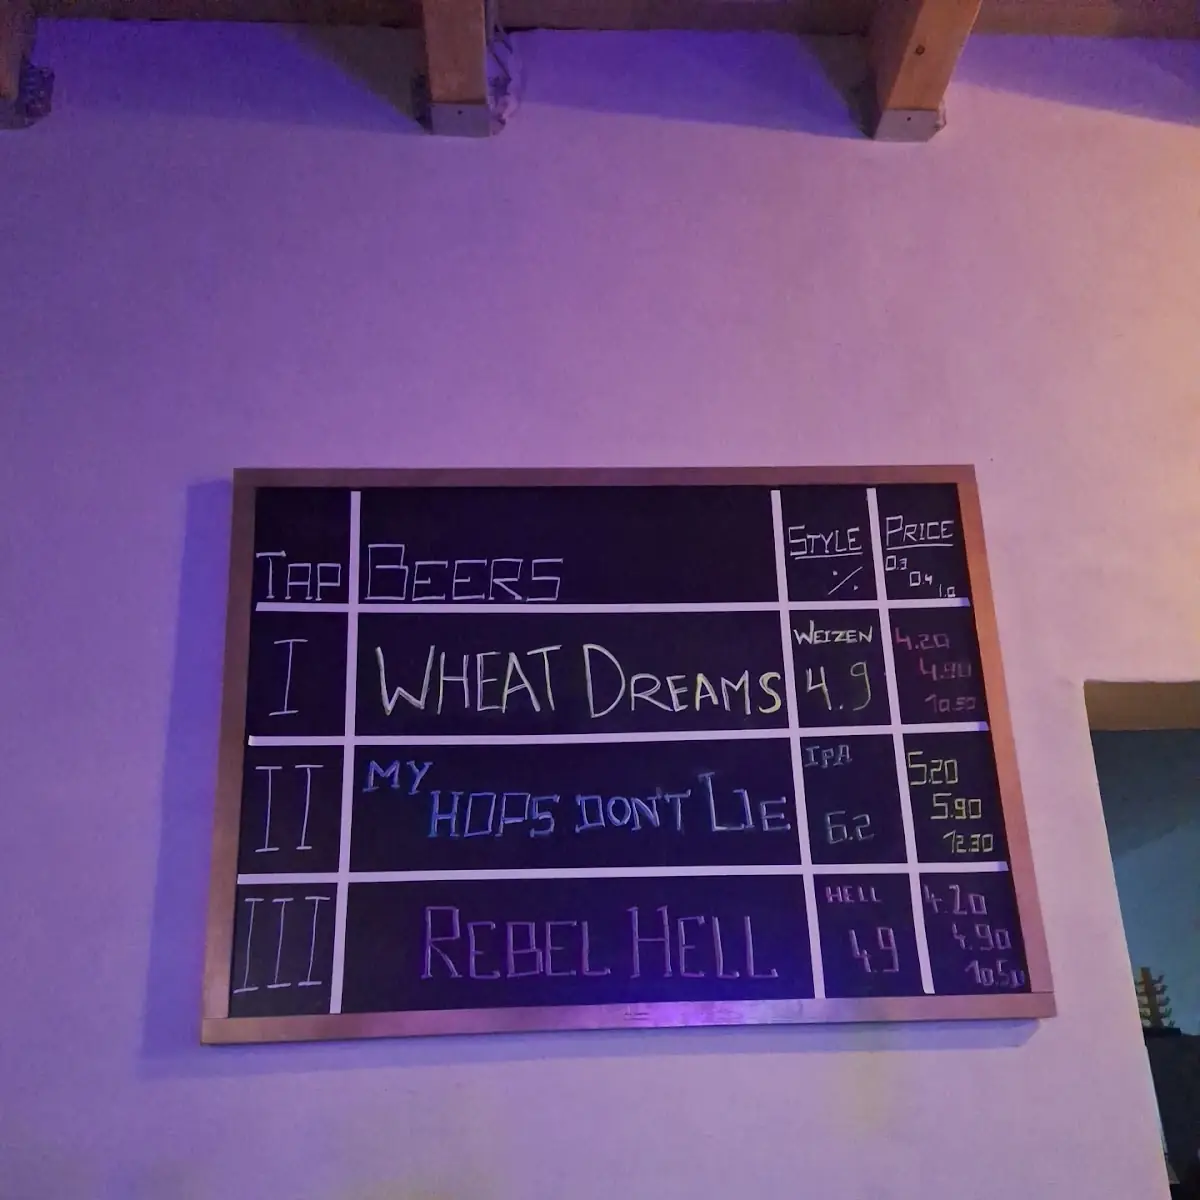 TAP BEERS STYLE % PRICE 0.3 0.4 1.0
I WHEAT DREAMS WEIZEN 4.9 4.20 4.90 10.50
II MY HOPS DON'T LIE IPA 6.2 5.20 5.90 12.30
III REBEL HELL HELL 4.9 4.20 4.90 10.50